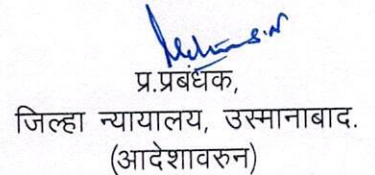 प्र.प्रबंधक,
जिल्हा न्यायालय, उस्मानाबाद.
(आदेशावरुन)